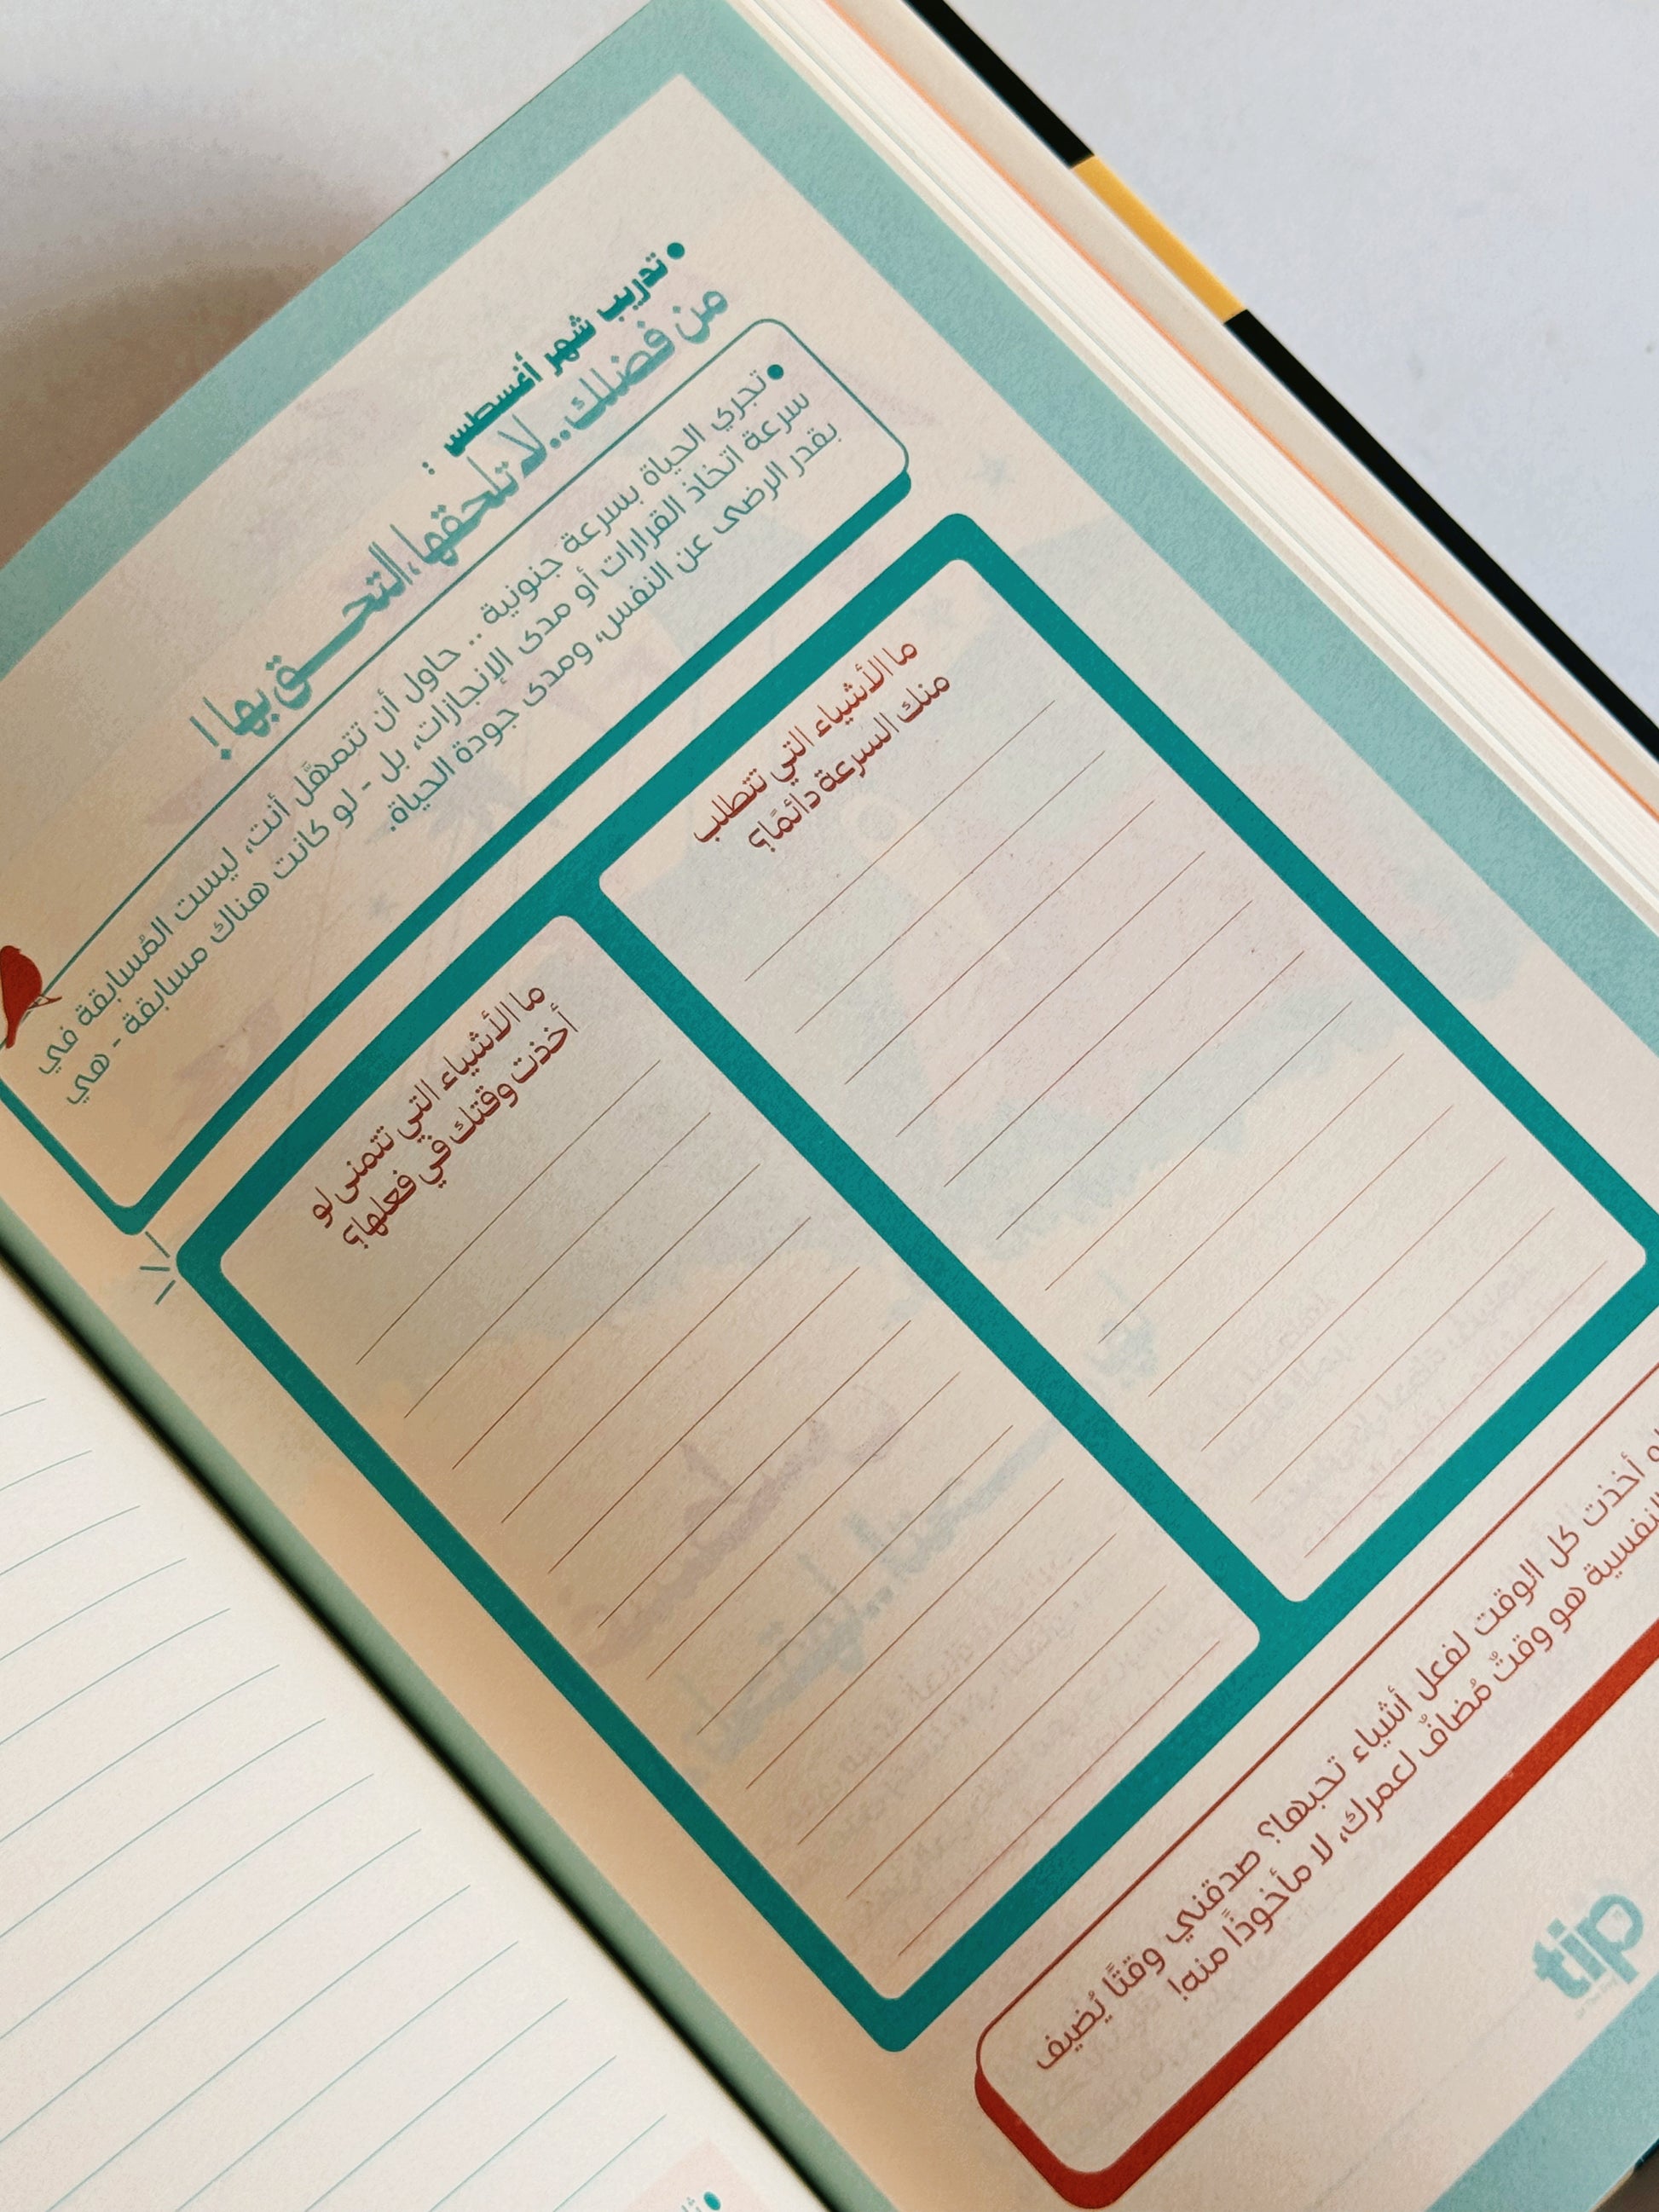 • تدريب شهر أغسطس :
من فضلك.. لا تلحقها، التحـــق بها!
• تجري الحياة بسرعة جنونية .. حاول أن تتمهَّل أنت، ليست المُسابقة في
سرعة اتخاذ القرارات أو مدى الإنجازات، بل - لو كانت هناك مسابقة - هي
بقدر الرضى عن النفس، ومدى جودة الحياة.
ما الأشياء التي تتطلب
منك السرعة دائمًا؟
ما الأشياء التي تتمنى لو
أخذت وقتك في فعلها؟
أخذت كل الوقت لفعل أشياء تحبها؟ صدقني وقتًا يُضيف
النفسية هو وقتٌ مُضافٌ لعمرك، لا مأخوذًا منه!
tip